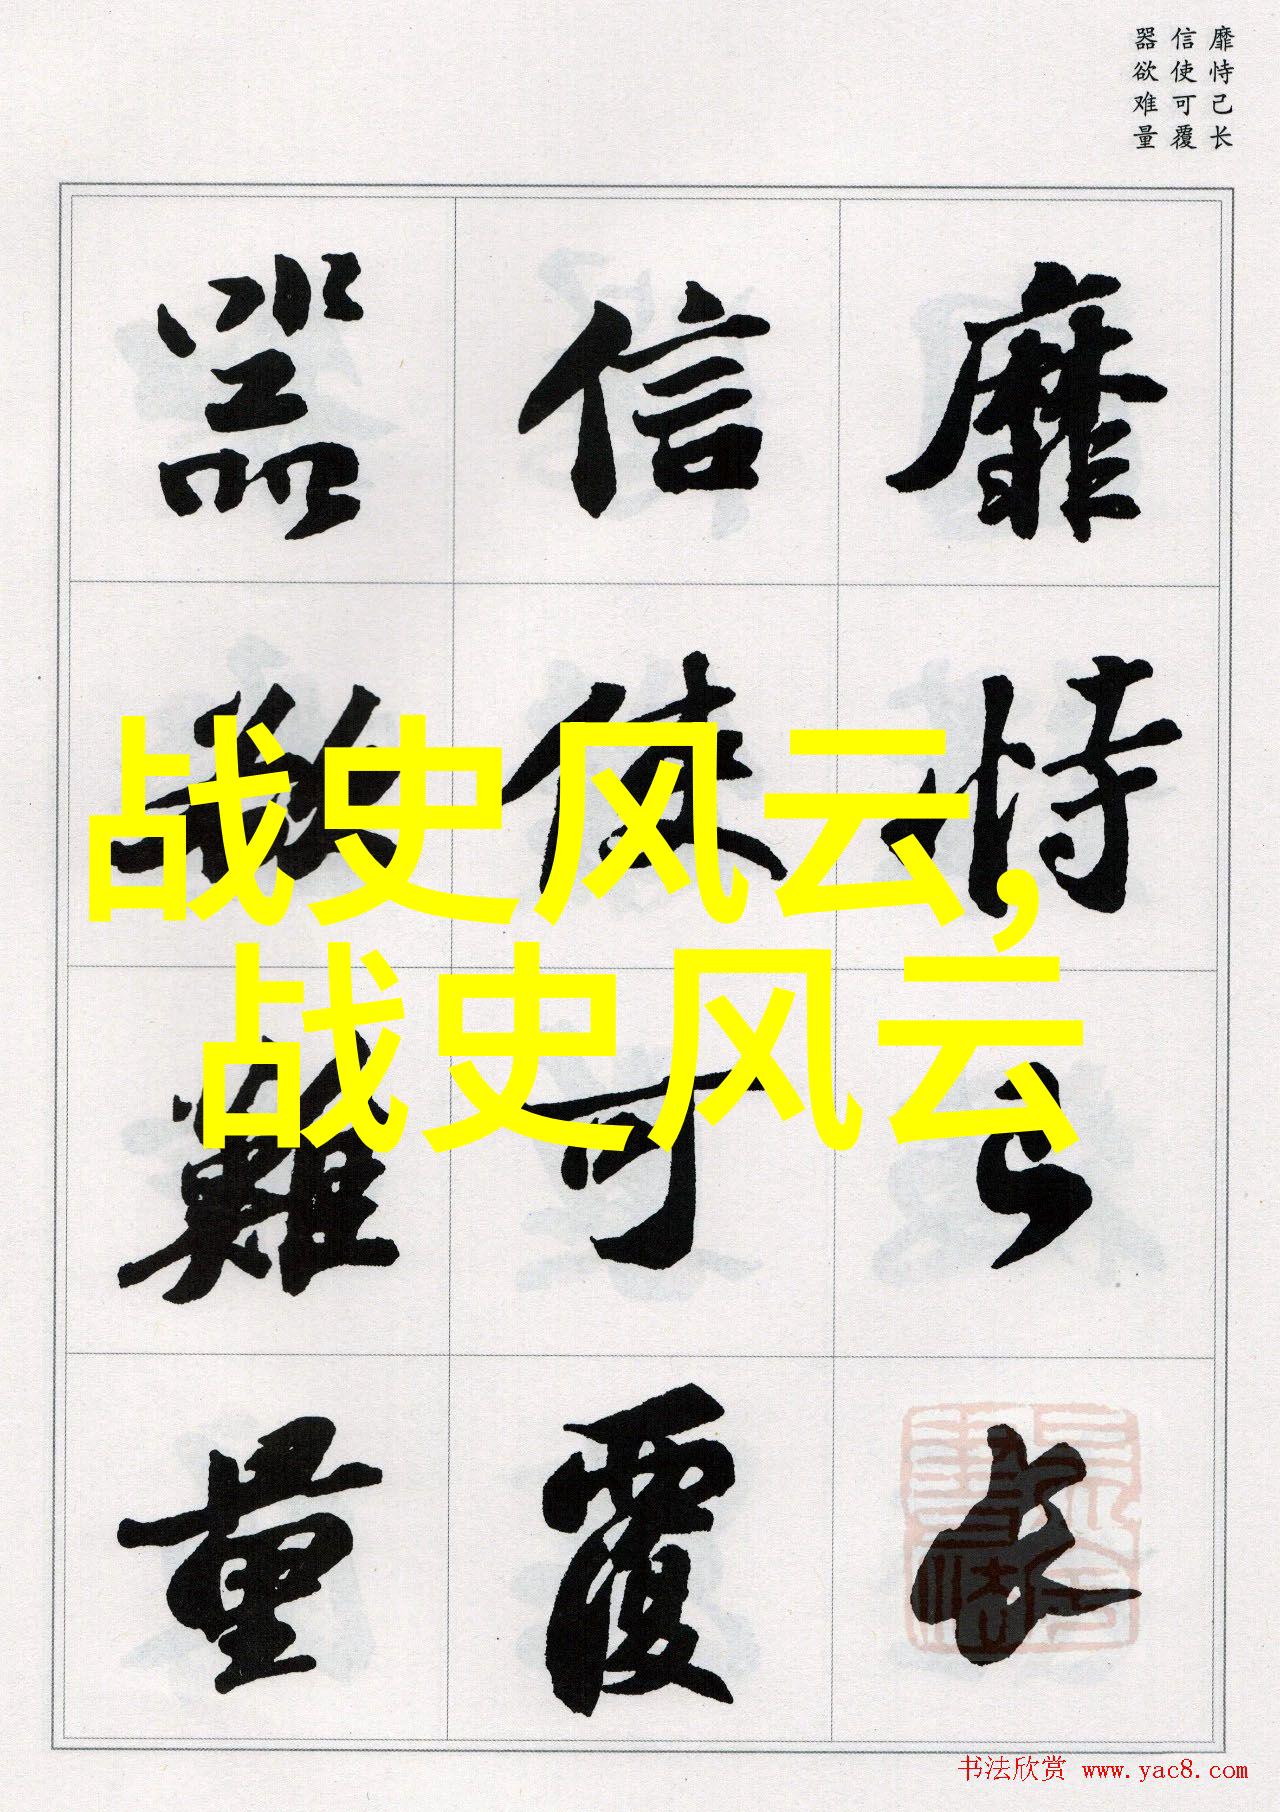 靡恃己长
信使可覆
器欲难量
靡恃己长
信使可覆
器欲難量
战史风云,
战史风云
书法欣赏 www.yac8.com